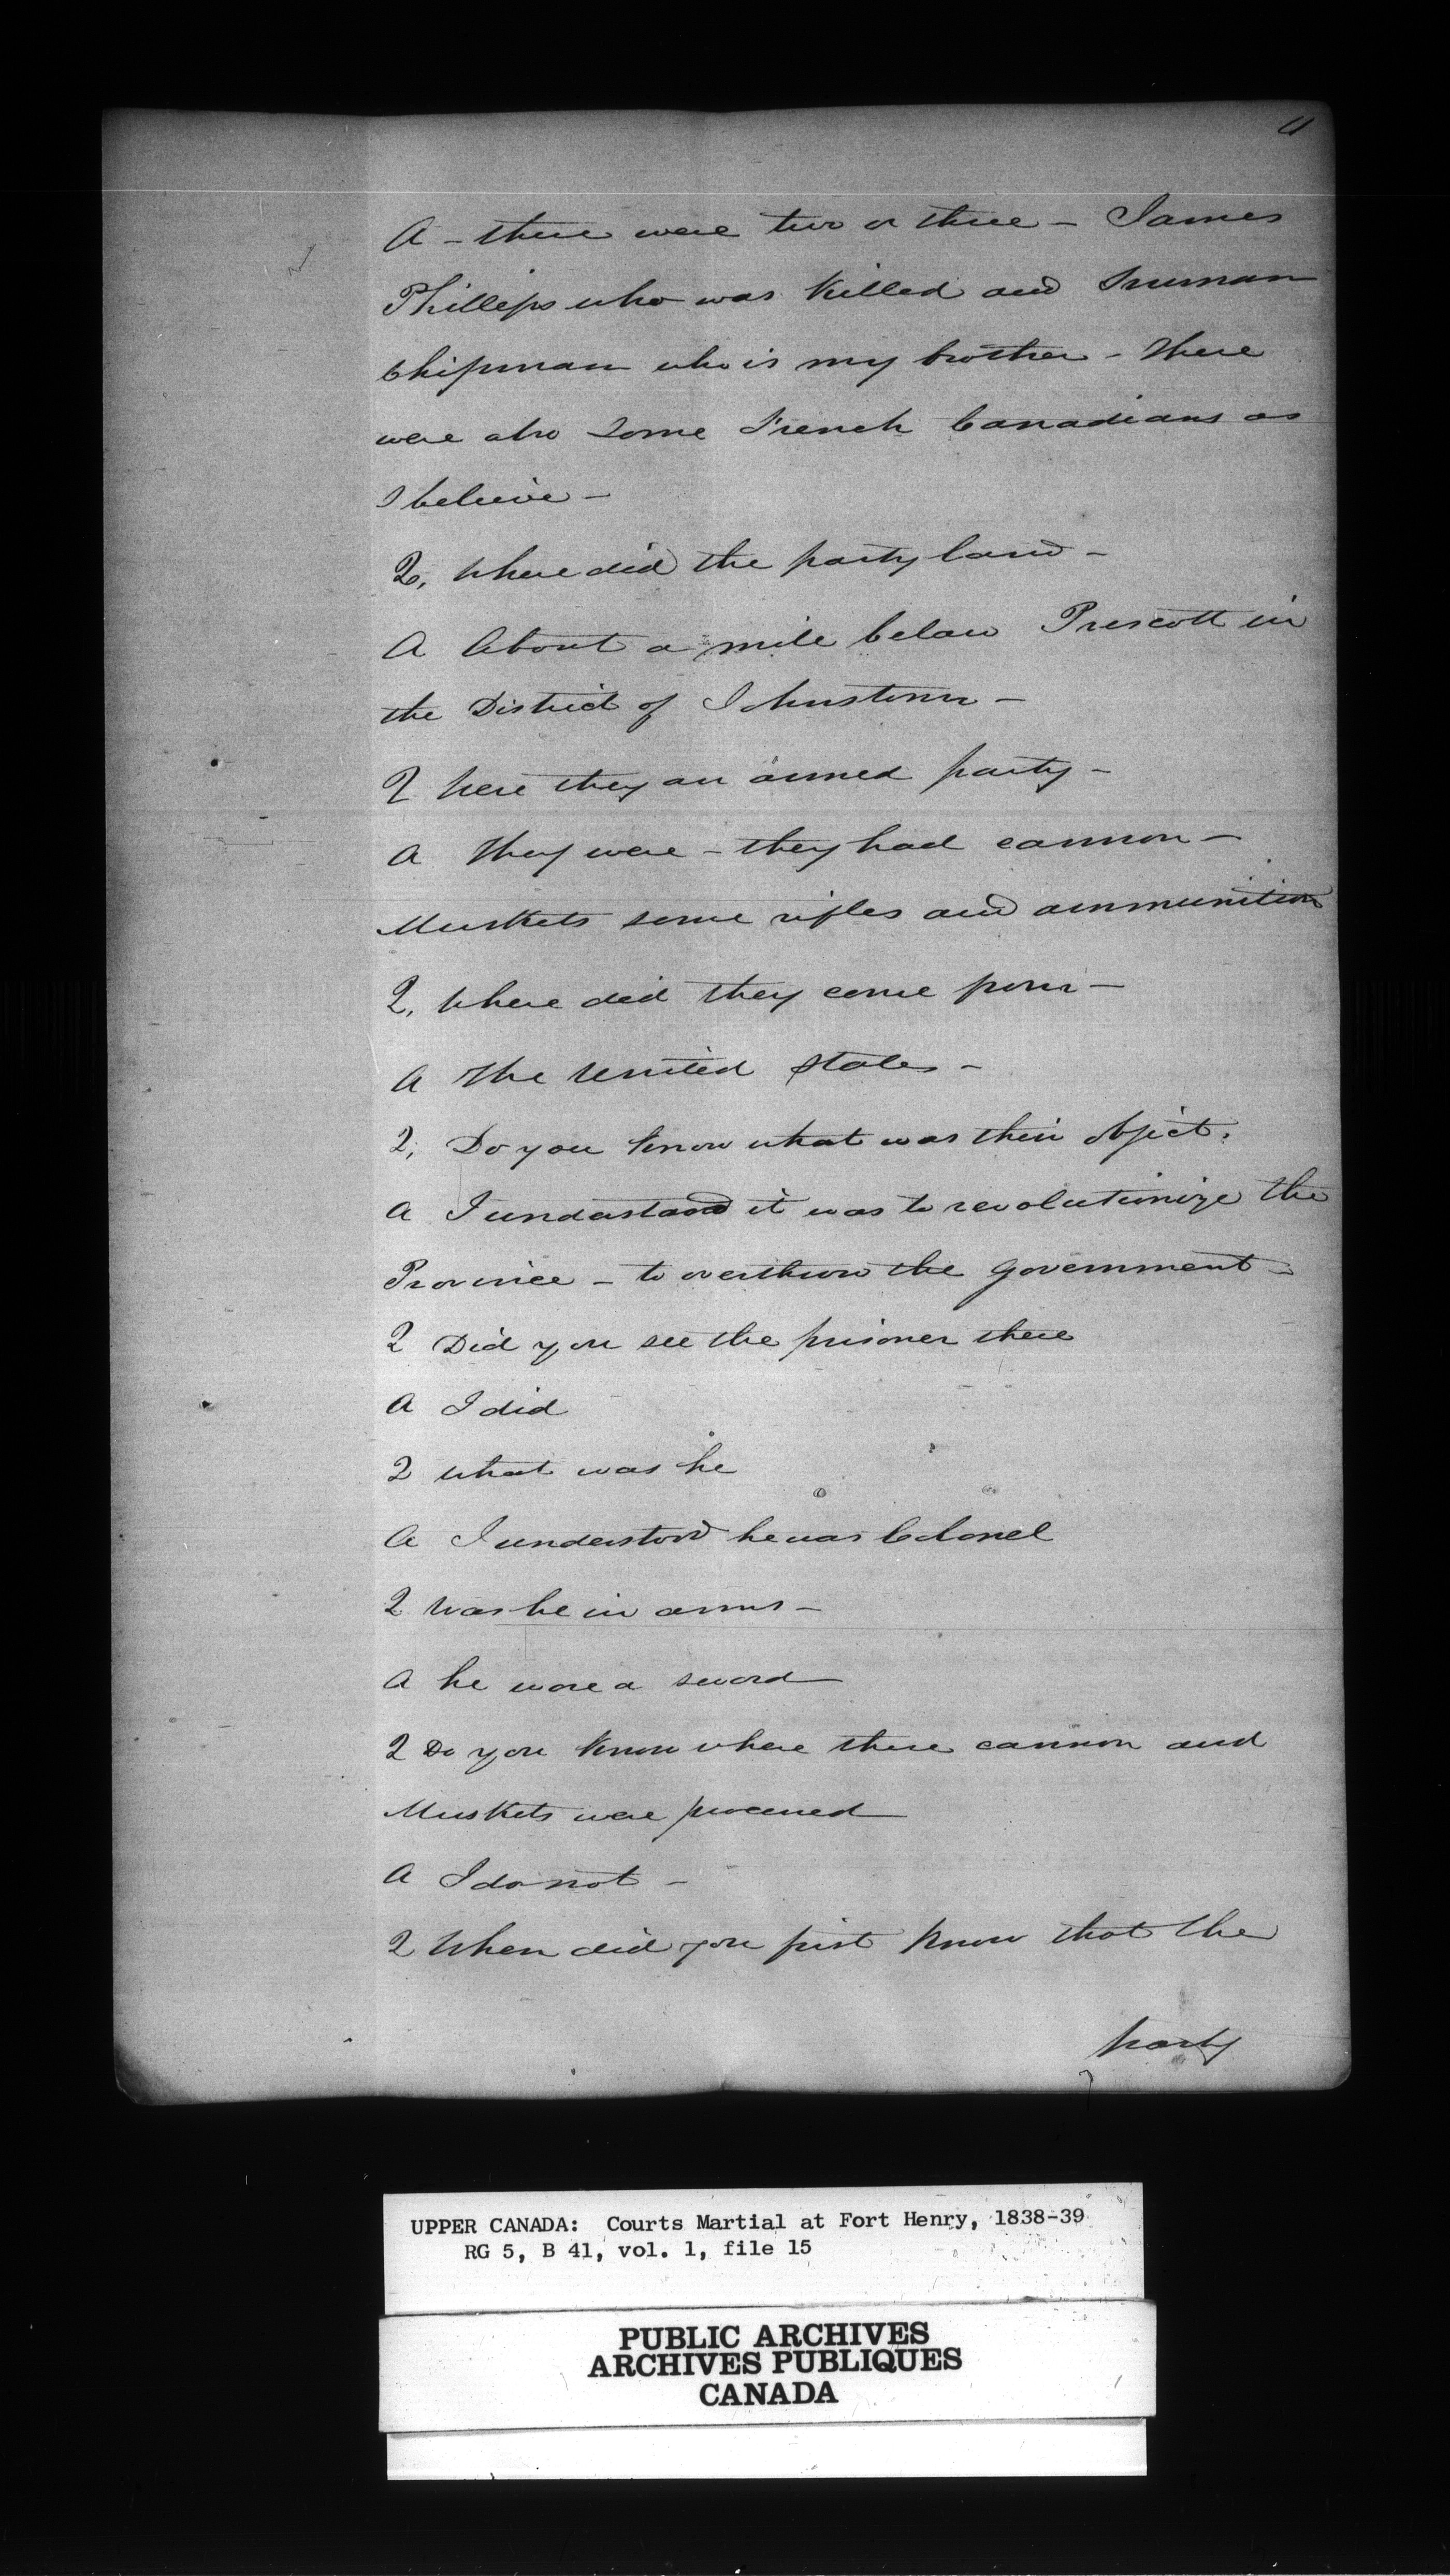 11
A - there were two or three - James
Phillips who was killed and Truman
Chipman who is my brother - there
were also some French Canadians as
I believe -
Q, Where did the party land -
A About a mile below Prescott in
the District of Johnstown -
Q Were they an armed party -
A They were - they had cannon -
Muskets some rifles and ammunition
Q, Where did they come from -
A The United States -
Q, Do you know what was their object.
A I understand it was to revolutionize the
Province - to overthrow the Government -
Q Did you see the prisoner there
A I did
Q What was he
A I understood he was Colonel
Q Was he in arms -
A he wore a sword
Q Do you know where these cannon and
Muskets were procured
A I do not -
Q When did you first know that the
party
UPPER CANADA: Courts Martial at Fort Henry, 1838-39
RG 5, B 41, vol. 1, file 15
PUBLIC ARCHIVES
ARCHIVES PUBLIQUES
CANADA